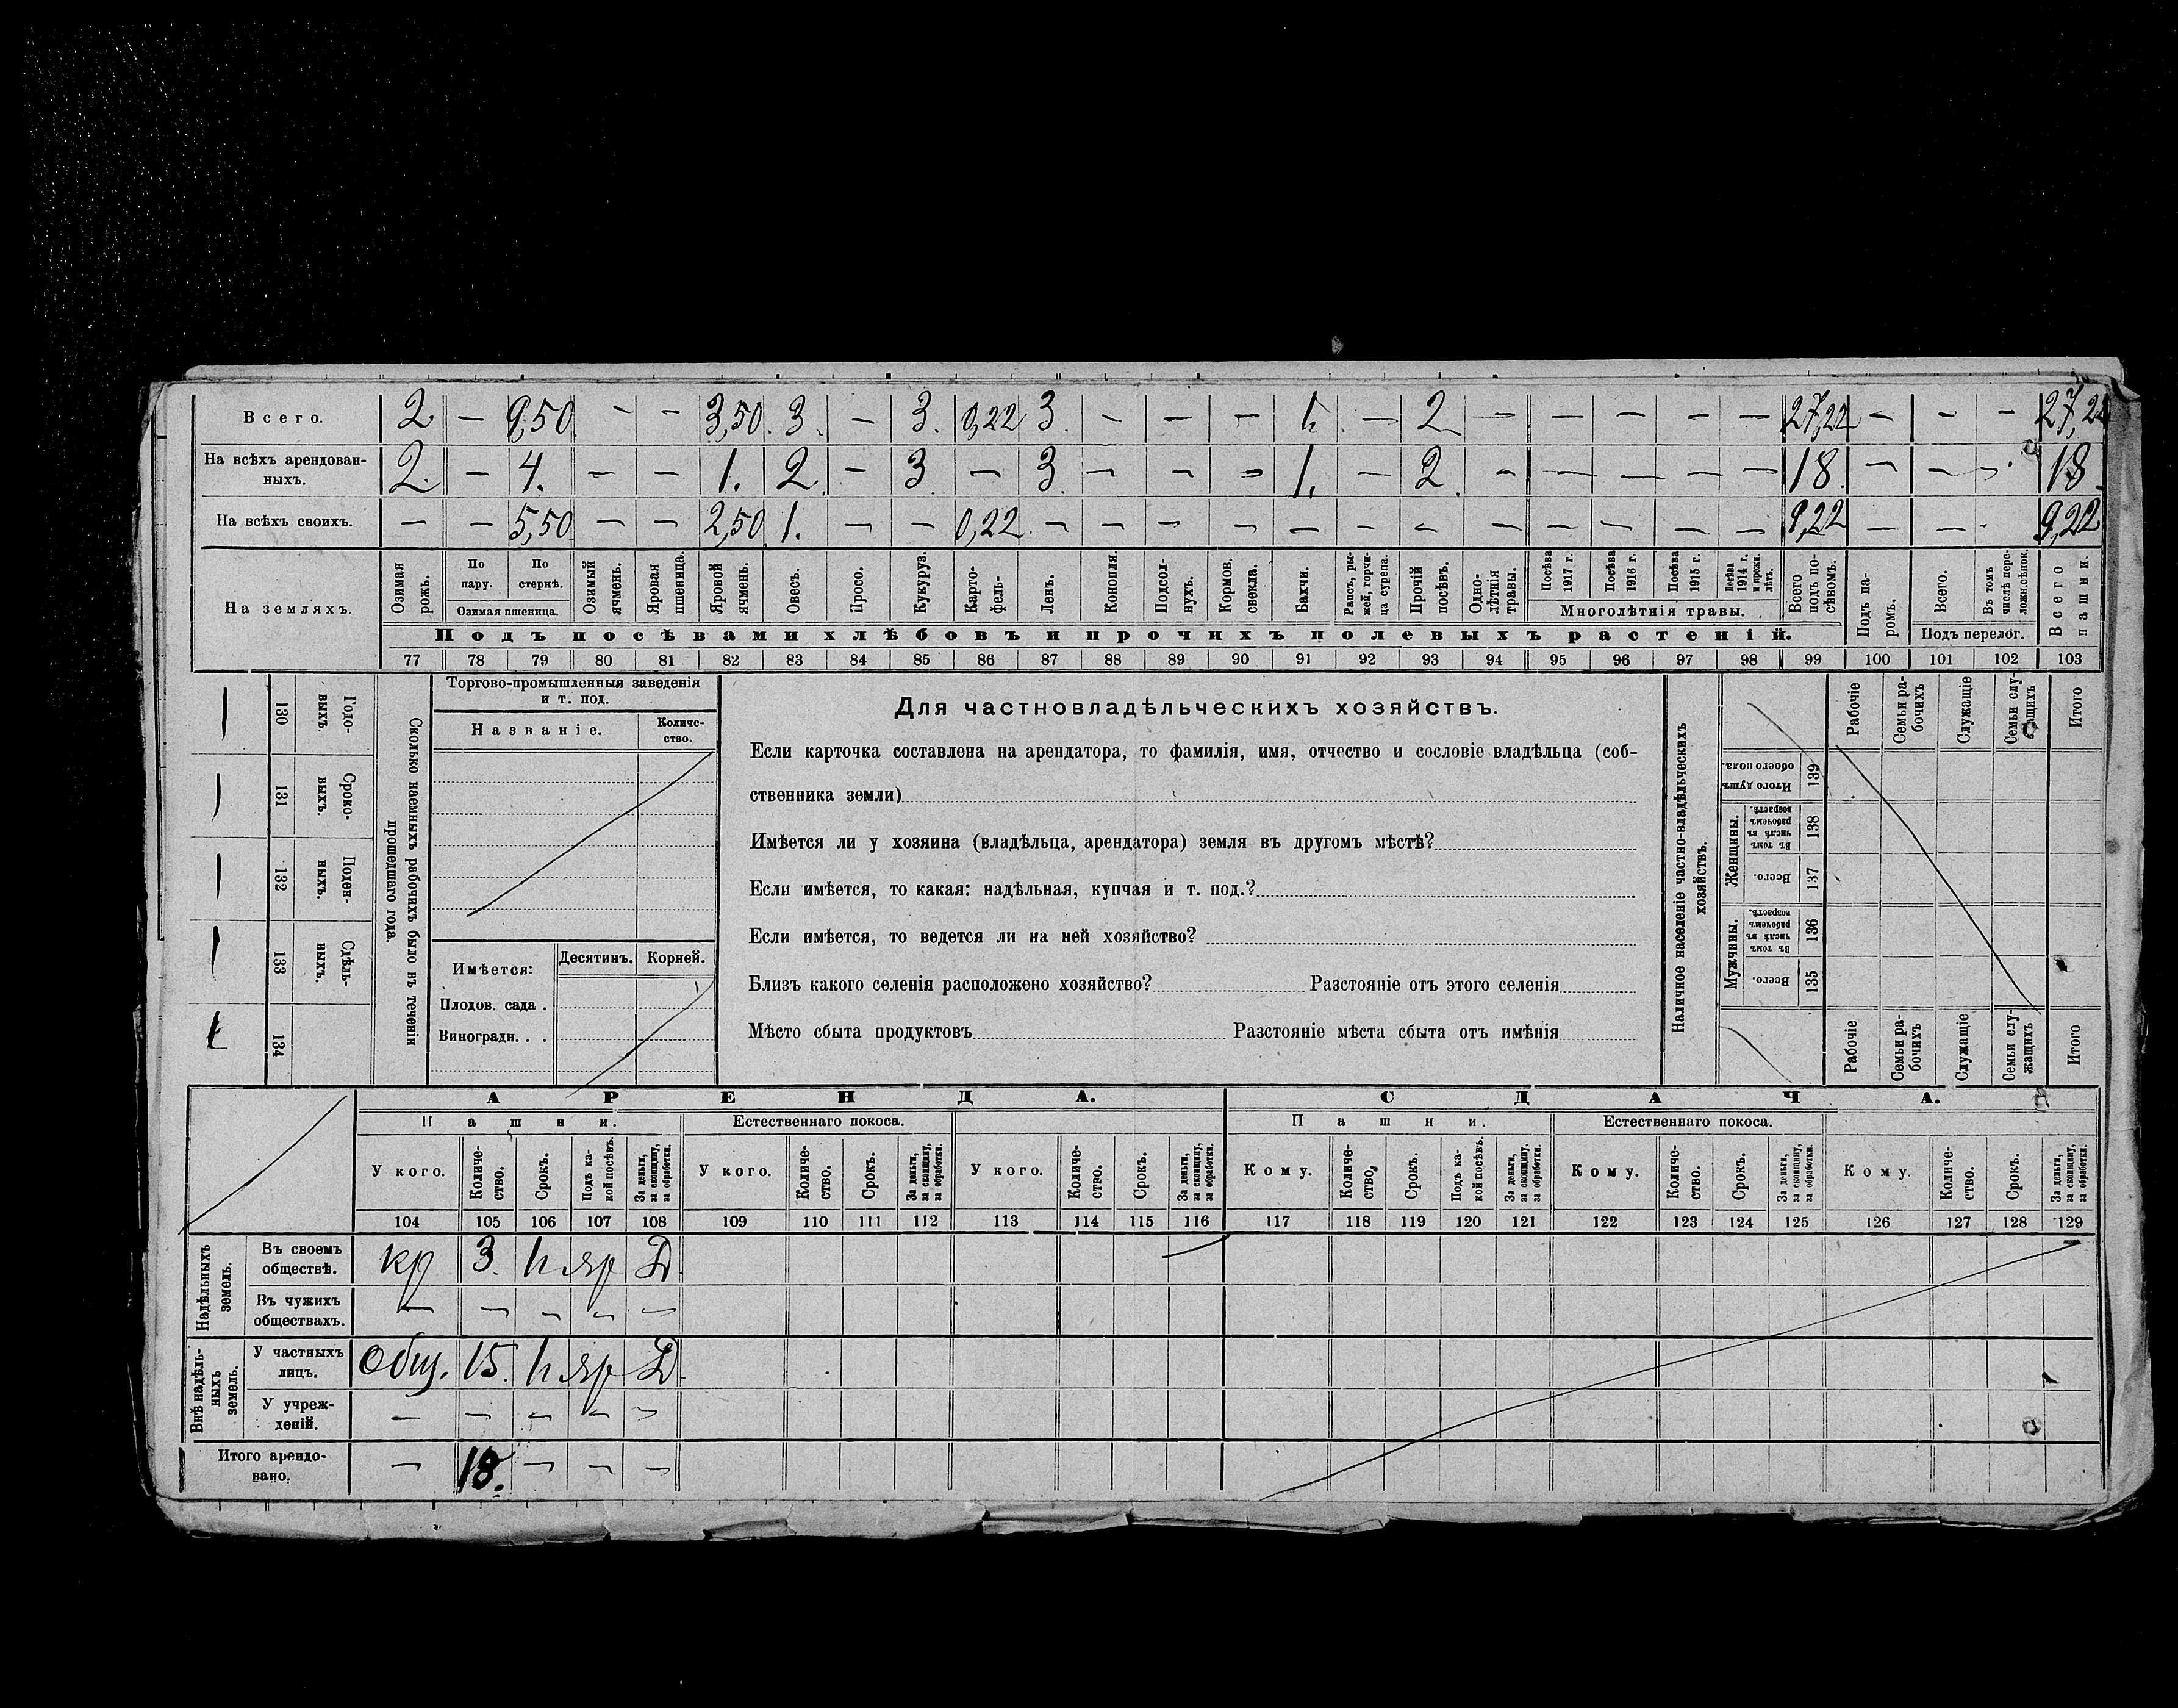 Всего. 2 — 9,50 — — 3,50 3 — 3. 0,22 3 — — — 1. — 2 — — — — — 27,22 — — — 27,22
На всѣхъ арендован-
ныхъ. 2. — 4. — — 1. 2 — 3 — 3. — — — 1. — 2 — — — — — 18. — — — 18
На всѣхъ своихъ. — — 5,50 — — 2,50 1. — — 0,22 — — — — — — — — — — — — 9,22 — — — 9,22
На земляхъ.
Озимая рожь.
По пару.
По стернѣ.
Озимая пшеница.
Озимый ячмень.
Яровая пшеница.
Яровой ячмень.
Овесъ.
Просо.
Кукуруз.
Карто-
фель-
Ленъ.
Конопля.
Подсол-
нухъ.
Кормов. свекла.
Бахчи.
Рапсъ, ры-
жей, горчи-
ца сурепа.
Прочій посѣвъ.
Одно-
лѣтнія травы.
Посѣва 1917 г.
Посѣва 1916 г.
Посѣва 1915 г.
Посѣва 1914 г. и прежн. лѣтъ.
Многолѣтнія травы.
Всего подъ по-
сѣвомъ.
Подъ па-
ромъ.
Всего.
Въ томъ числѣ пере-
ложн.сѣнок.
Подъ перелог.
Всего пашни.
Подъ посѣвами хлѣбовъ и прочихъ полевыхъ растеній.
77 78 79 80 81 82 83 84 85 86 87 88 89 90 91 92 93 94 95 96 97 98 99 100 101 102 103
— 130 Годо-
выхъ.
— 131 Сроко-
выхъ.
— 132 Поден-
ныхъ.
— 133 Сдѣль-
ныхъ.
134
Сколько наемныхъ рабочихъ было въ теченіи
прошедшаго года.
Торгово-промышленныя заведенія
и т. под.
Названіе.
Количе-
ство.
Имѣется: Десятинъ. Корней.
Плодов. сада .
Виноградн. . .
Для частновладѣльческихъ хозяйствъ.
Если карточка составлена на арендатора, то фамилія, имя, отчество и сословіе владѣльца (соб-
ственника земли)
Имѣется ли у хозяина (владѣльца, арендатора) земля въ другомъ мѣстѣ?
Если имѣется, то какая: надѣльная, купчая и т. под.?
Если имѣется, то ведется ли на ней хозяйство?
Близъ какого селенія расположено хозяйство? Разстояніе отъ этого селенія
Мѣсто сбыта продуктовъ Разстояніе мѣста сбыта отъ имѣнія
Наличное населеніе частно-владѣльческихъ
хозяйствъ.
Рабочіе
Семьи ра-
бочихъ
Служащіе
Семьи слу-
жащихъ
Итого
Итого душъ обоего пола. 139
Женщины.
Въ томъ числѣ въ рабочемъ возрастѣ. 138
Всего. 137
Мужчины.
Въ томъ числѣ въ рабочемъ возрастѣ. 136
Всего. 135
Рабочіе
Семьи ра-
бочихъ
Служащіе
Семьи слу-
жащихъ
Итого
АРЕНДА. СДАЧА.
Пашни. Естественнаго покоса. Пашни. Естественнаго покоса.
У кого.
Количе-
ство.
Срокъ.
Подъ ка-
кой посѣвъ.
За деньги,
за скопщину,
за обработки.
У кого.
Количе-
ство.
Срокъ.
За деньги,
за скопщину,
за обработки.
У кого.
Количе-
ство.
Срокъ.
За деньги,
за скопщину,
за обработки.
Кому.
Количе-
ство.
Срокъ.
Подъ ка-
кой посѣвъ.
За деньги,
за скопщину,
за обработки.
Кому.
Количе-
ство.
Срокъ.
За деньги,
за скопщину,
за обработки.
Кому.
Количе-
ство.
Срокъ.
За деньги,
за скопщину,
за обработки.
104 105 106 107 108 109 110 111 112 113 114 115 116 117 118 119 120 121 122 123 124 125 126 127 128 129
Надѣльныхъ
земель.
Въ своемъ
обществѣ. кр 3. 1г. яр Д.
Въ чужихъ
обществахъ. — — — — —
Внѣ надѣль-
ныхъ
земель.
У частныхъ
лицъ. Общ. 15. 1г. яр Д.
У учреж-
деній. — — — — —
Итого арендо-
вано. — 18. — — —